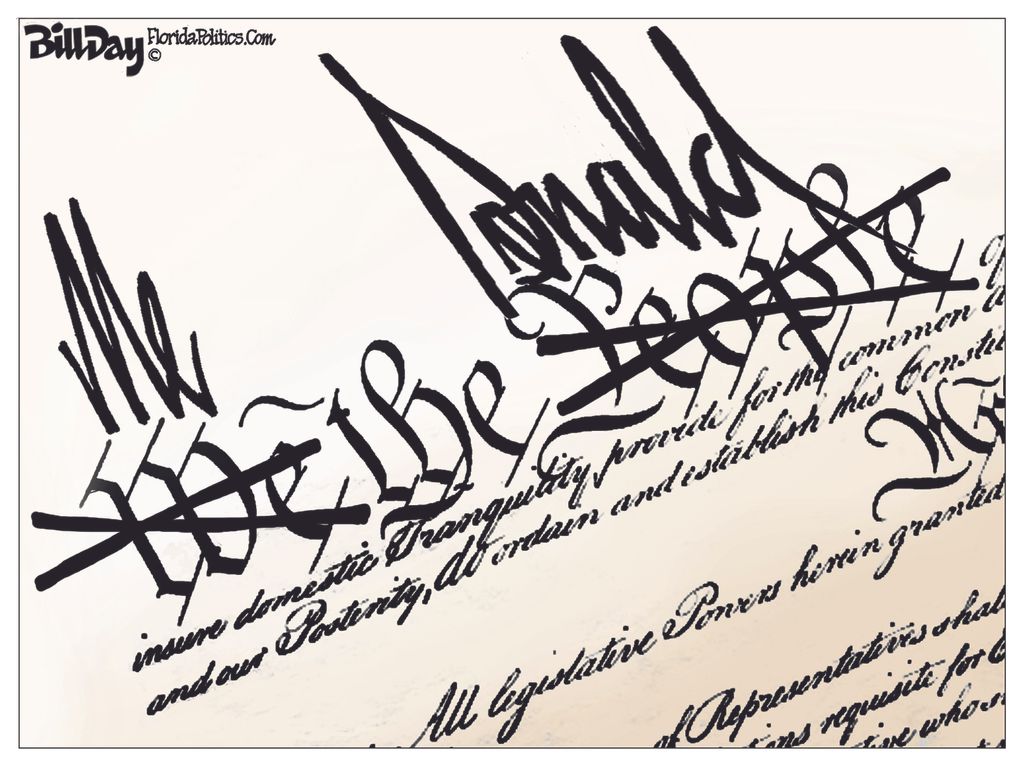 BillDay FloridaPolitics.Com
©
Me Donald
We the People
insure domestic Tranquility, provide for the common
and our Posterity, do ordain and establish this Constit
All legislative Powers herein granted
of Representatives shall
requisite for
who